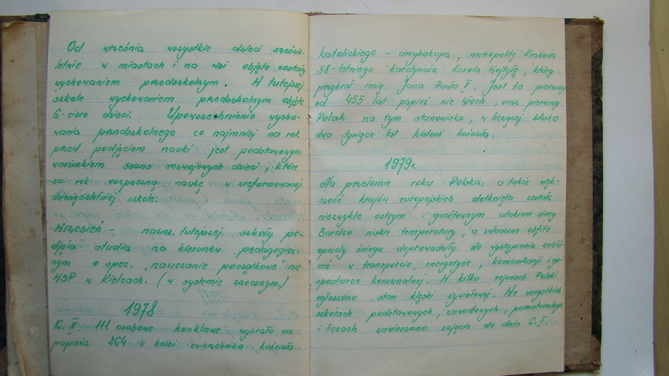 Od września wszystkie dzieci sześcio-
letnie w miastach i na wsi objęte zostały
wychowaniem przedszkolnym. W tutejszej
szkole wychowaniem przedszkolnym objęto
6-cioro dzieci. Upowszechnienie wycho-
wania przedszkolnego co najmniej na rok
przed podjęciem nauki jest podstawowym
warunkiem szans rozwojowych dzieci, które
za rok rozpoczną naukę w zreformowanej
dziesięcioletniej szkole.
Wrzesień - naucz. tutejszej szkoły po-
djęła studia na kierunku pedagogicz-
nym o spec. "nauczanie początkowe" na
WSP w Kielcach. (w systemie zaocznym)
1978
16.X. 111 osobowe konklawe wybrało na
papieża 264 z kolei zwierzchnika kościoła
katolickiego - arcybiskupa, metropolitę Krakowa
58-letniego kardynała Karola Wojtyłę, który
przybrał imię Jana Pawła II. Jest to pierwszy
od 455 lat papież nie Włoch, oraz pierwszy
Polak na tym stanowisku, w liczącej blisko
dwa tysiące lat historii kościoła.
1979r.
Na przełomie roku Polska, a także więk-
szość krajów europejskich dotknięta została
niezwykle ostrym i gwałtownym atakiem zimy.
Bardzo niskie temperatury, a zwłaszcza obfite
opady śniegu doprowadziły do wystąpienia zakłó-
ceń w transporcie, energetyce, komunikacji i go-
spodarce komunalnej. W kilku rejonach Polski
ogłoszono stan klęski żywiołowej. We wszystkich
szkołach podstawowych, zawodowych, pomaturalnych
i liceach zawieszono zajęcia do dnia 6.I.